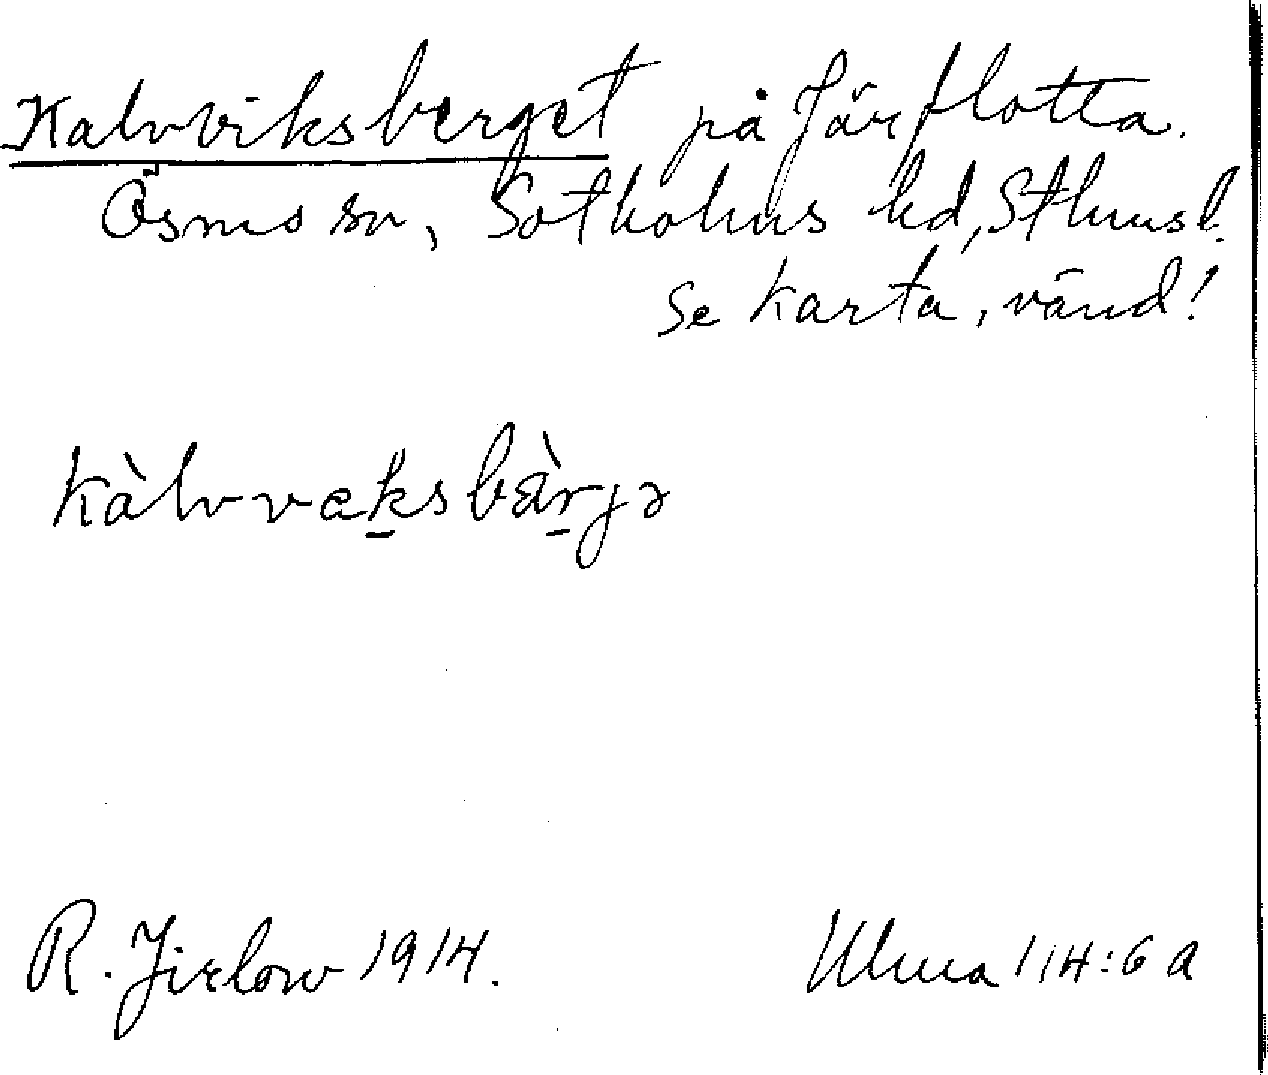 Kalvviksberget på Järflotta.
Ösmo sn, Sotholms hd, Sthms l.
Se karta, vänd!
kàlvveksbàrjə
R. Jirlow 1914.
Ulma 114:6 a